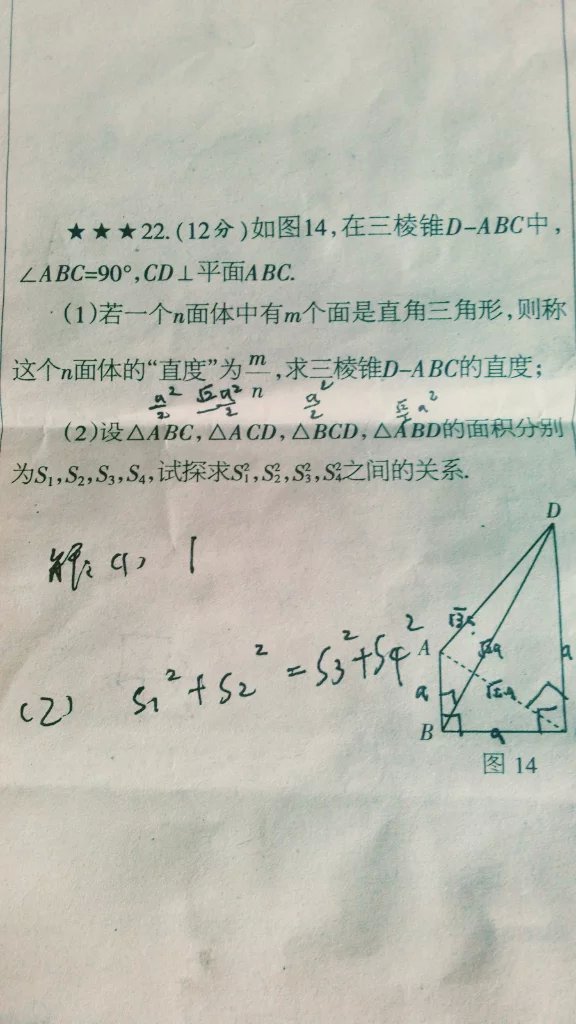 ★★★22.(12分)如图14,在三棱锥D-ABC中,
∠ABC=90°,CD⊥平面ABC.
(1)若一个n面体中有m个面是直角三角形,则称
这个n面体的“直度”为m/n,求三棱锥D-ABC的直度;
a²/2 √2a²/2 a²/2 √2/2 a²
(2)设△ABC,△ACD,△BCD,△ABD的面积分别
为S₁,S₂,S₃,S₄,试探求S₁²,S₂²,S₃²,S₄²之间的关系.
解:(1) 1
(2) S1²+S2²=S3²+S4²
D
√3a
A
√2a
a
a
√2a
B
a
图 14